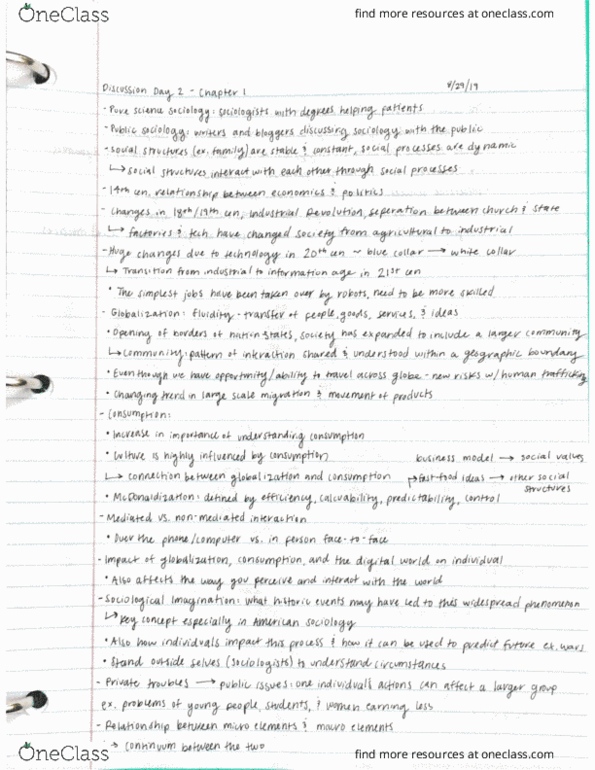 OneClass
find more resources at oneclass.com
Discussion Day 2 - Chapter 1
8/29/19
- Pure science sociology: sociologists with degrees helping patients
- Public sociology: writers and bloggers discussing sociology with the public
- Social structures (ex. family) are stable & constant, social processes are dynamic
↳ social structures interact with each other through social processes
- 14th cen, relationship between economics & politics
- Changes in 18th/19th cen, Industrial Revolution, seperation between church & state
↳ factories & tech have changed society from agricultural to industrial
- Huge changes due to technology in 20th cen ~ blue collar → white collar
↳ Transition from industrial to information age in 21st cen
• The simplest jobs have been taken over by robots, need to be more skilled
- Globalization: fluidity - transfer of people, goods, services, & ideas
• Opening of borders of nation states, society has expanded to include a larger community
↳ Community: pattern of interaction shared & understood within a geographic boundary
• Even though we have opportunity/ability to travel across globe - new risks w/ human trafficking
• Changing trend in large scale migration & movement of products
- Consumption:
• Increase in importance of understanding consumption
• Culture is highly influenced by consumption
business model → social values
↳ connection between globalization and consumption
↱ fast-food ideas → other social structures
• McDonaldization: defined by efficiency, calcuability, predictability, control
- Mediated vs. non-mediated interaction
• Over the phone/computer vs. in person face-to-face
- Impact of globalization, consumption, and the digital world on individual
• Also affects the way you perceive and interact with the world
- Sociological Imagination: what historic events may have led to this widespread phenomenon
↳ key concept especially in American sociology
• Also how individuals impact this process & how it can be used to predict future ex. wars
• Stand outside selves (sociologists) to understand circumstances
- Private troubles → public issues: one individual's actions can affect a larger group
ex. problems of young people, students, & women earning less
- Relationship between micro elements & macro elements
→ continuum between the two
OneClass
find more resources at oneclass.com